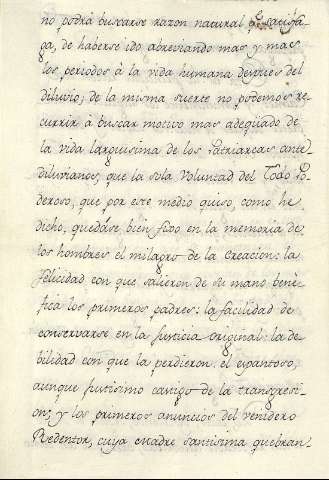 no podrá buscarse razon natural q̃ satisfa-
ga, de haberse ido abreviando mas y mas
los periodos à la vida humana despues del
diluvio; de la misma suerte no podemos re-
currir à buscar motivo mas adequado de
la vida larguisima de los Patriarcas ante-
diluvianos, que la sola Voluntad del Todo Po-
deroso, que por este medio quiso, como he
dicho, quedáse bien fixo en la memoria de
los hombres el milagro de la Creacion: la
felicidad con que salieron de su mano bene-
fica los primeros padres: la facilidad de
conservarse en la justicia original: la de-
bilidad con que la perdieron: el espantoso,
aunque justisimo castigo de la transgresi-
on; y los primeros anuncios del venidero
Redentor, cuya Madre santisima quebran-